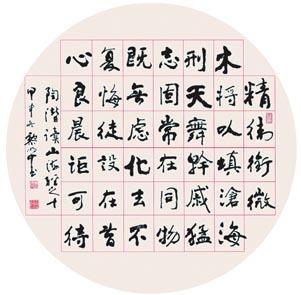 精衛銜微
木將以填滄海
刑天舞幹戚猛
志固常在同物
既無慮化去不
復悔徒設在昔
心良晨詎可待
陶潛讀山海經之十
甲申冬黎